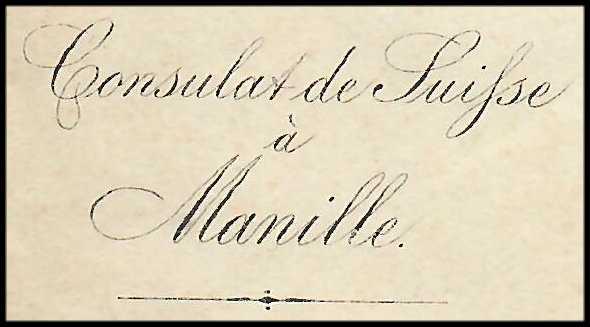 Consulat de Suiſse
à
Manille.